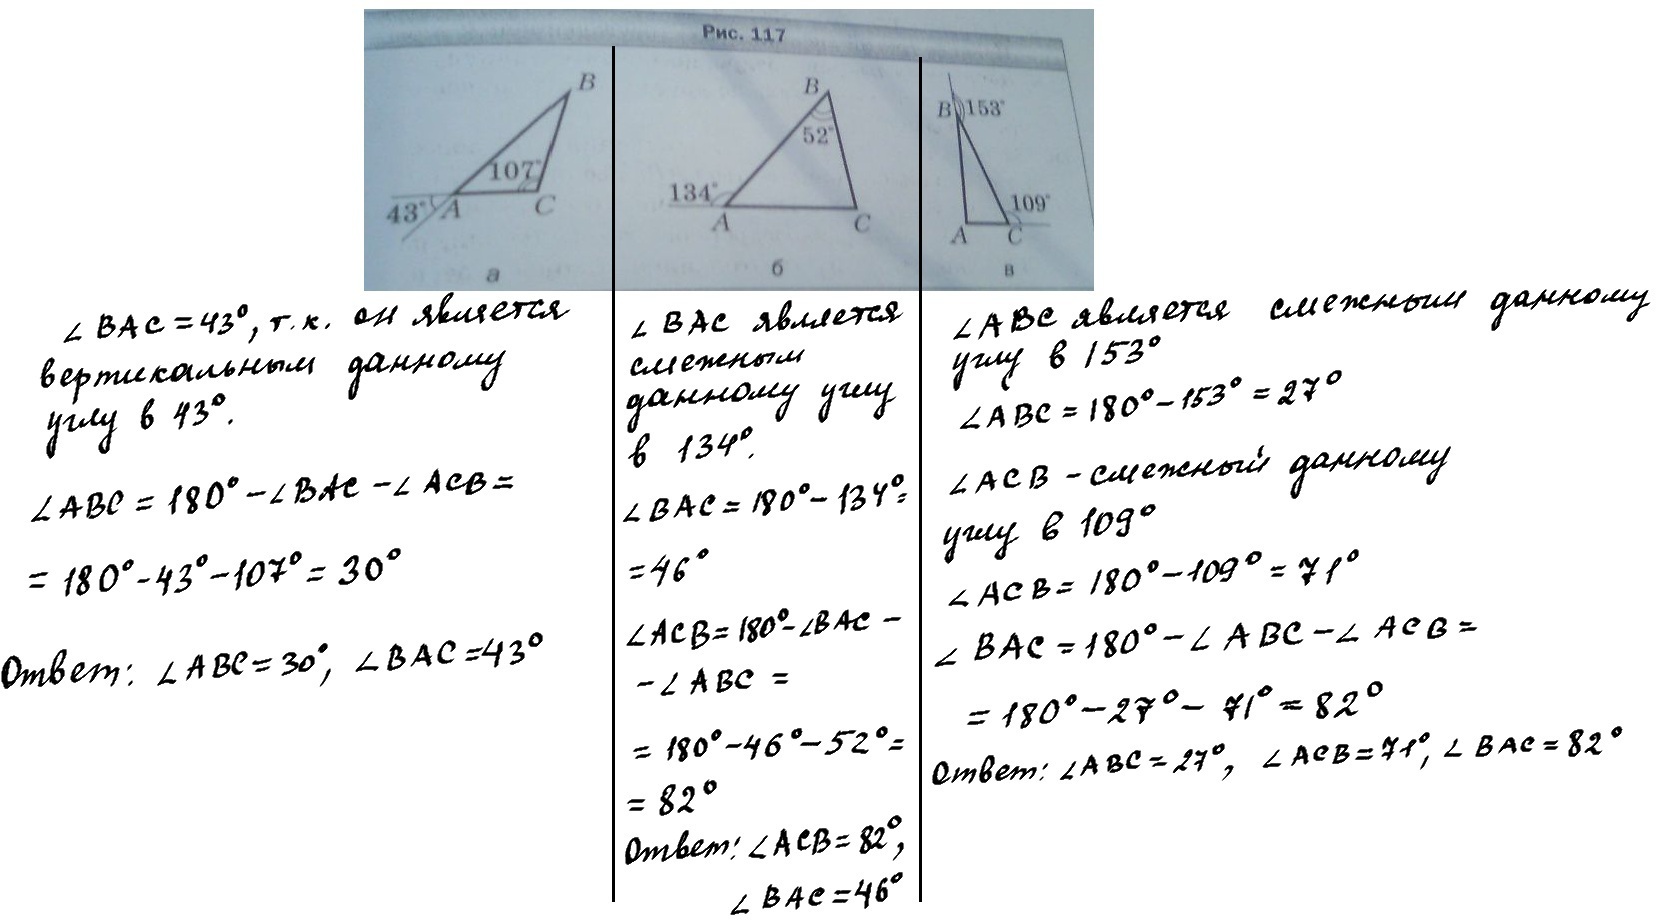 Рис. 117
B
107°
43°
A
C
а
B
52°
134°
A
C
б
B
153°
109°
A
C
в
∠BAC = 43°, т.к. он является
вертикальным данному
углу в 43°.
∠ABC = 180° - ∠BAC - ∠ACB =
= 180° - 43° - 107° = 30°
Ответ: ∠ABC = 30°, ∠BAC = 43°
∠BAC является
смежным
данному углу
в 134°.
∠BAC = 180° - 134° =
= 46°
∠ACB = 180° - ∠BAC -
- ∠ABC =
= 180° - 46° - 52° =
= 82°
Ответ: ∠ACB = 82°,
∠BAC = 46°
∠ABC является смежным данному
углу в 153°
∠ABC = 180° - 153° = 27°
∠ACB - смежный данному
углу в 109°
∠ACB = 180° - 109° = 71°
∠BAC = 180° - ∠ABC - ∠ACB =
= 180° - 27° - 71° = 82°
Ответ: ∠ABC = 27°, ∠ACB = 71°, ∠BAC = 82°